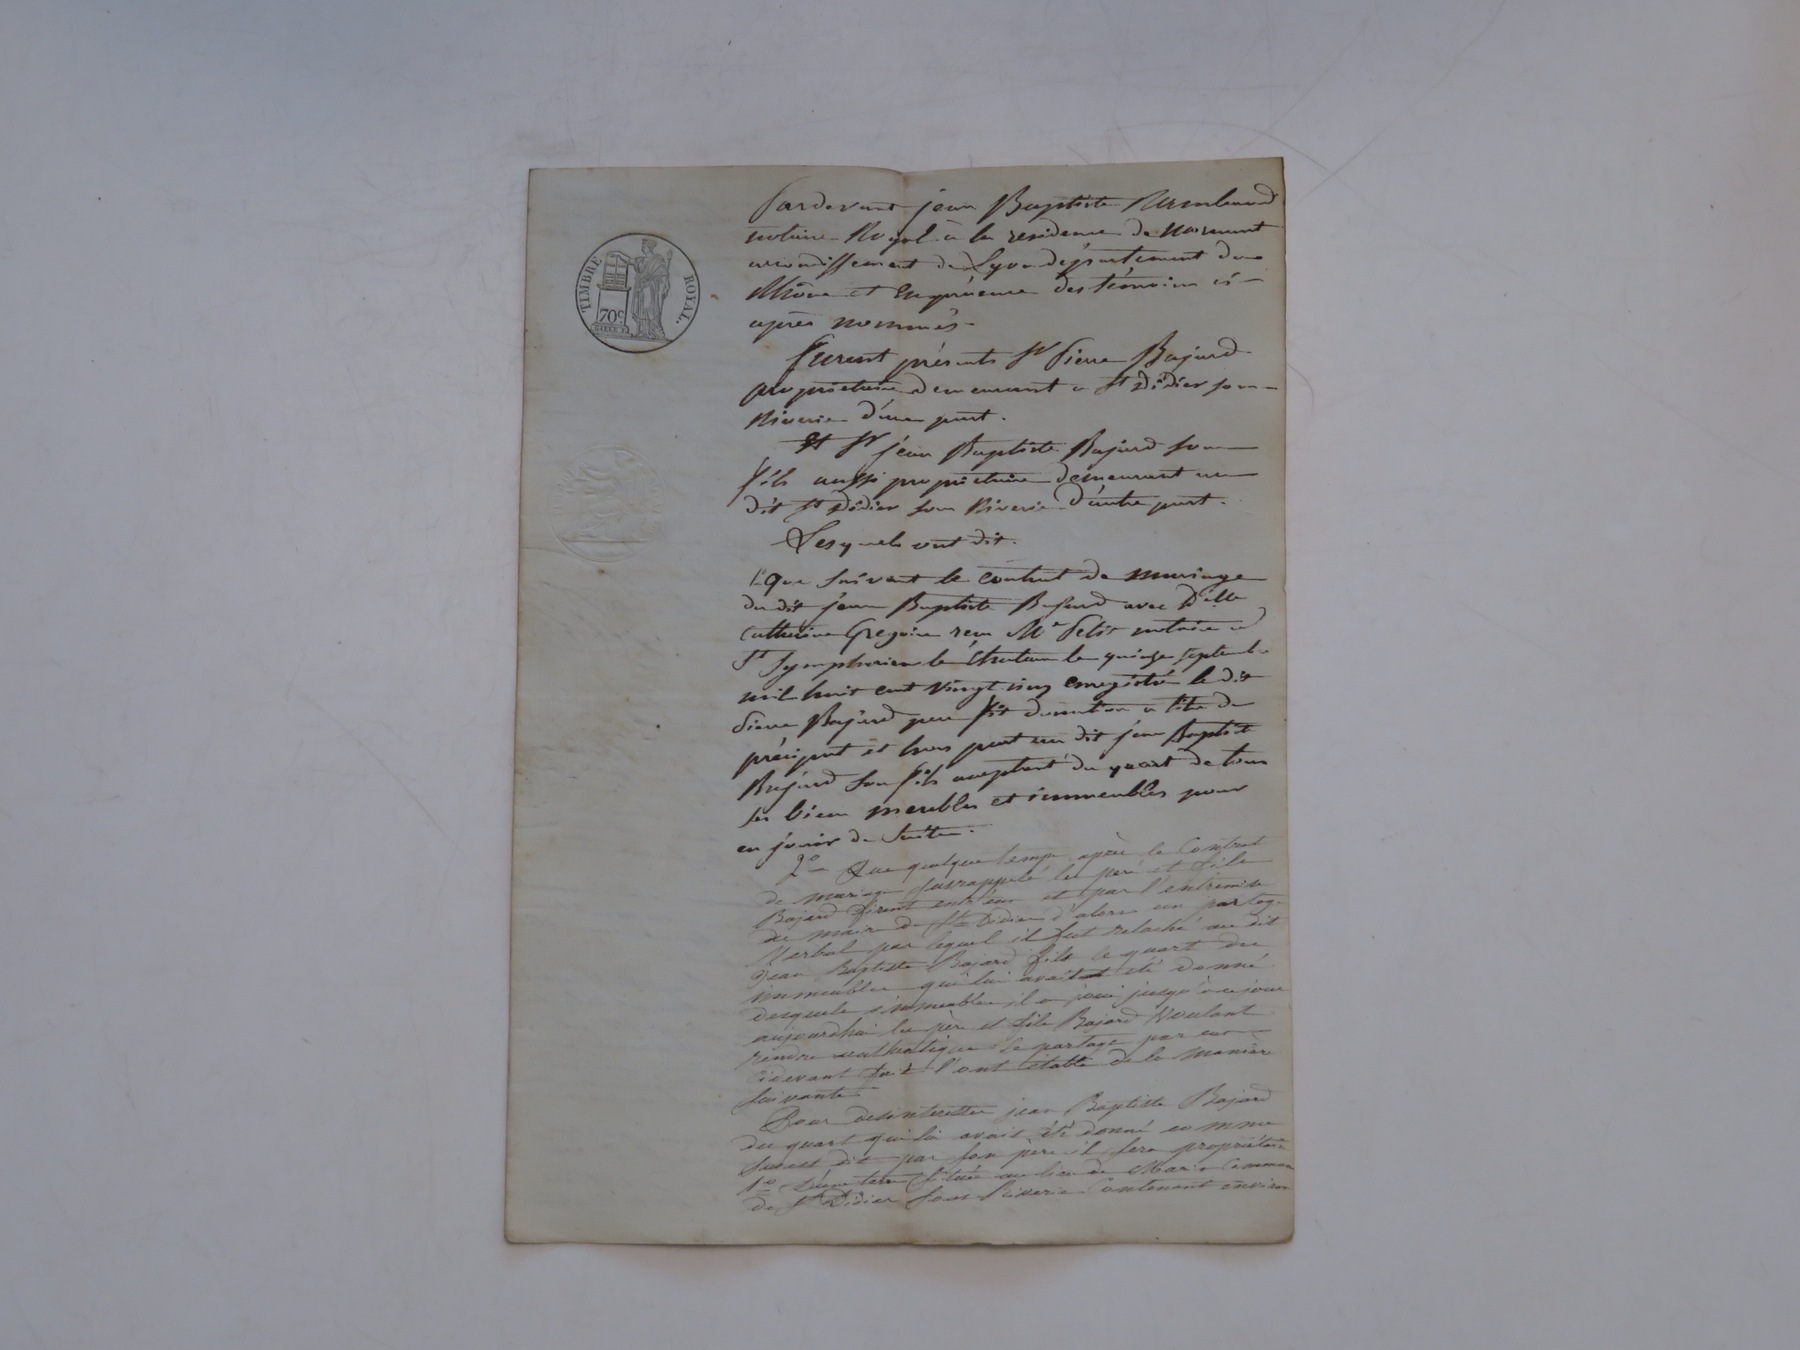 TIMBRE ROYAL.
70c
Pardevant jean Baptiste
notaire Royal à la residence de Mornant
arrondissement de Lyon département du
Rhône et En présence des témoins ci-
après nommés.
Furent présents Sr Pierre Bajard
propriétaire demeurant a St Didier sous
Riverie d'une part.
Et Sr jean Baptiste Bajard son
fils aussi propriétaire demeurant au
dit St Didier sous Riverie d'autre part.
Lesquels ont dit.
1º Que suivant le contrat de mariage
du dit jean Baptiste Bajard avec Delle
Catherine Gregoire reçu Me Petit notaire a
St Symphorien le Chateau le quinze septembre
mil huit cent vingt cinq enregistré le dit
Pierre Bajard pere fit donation a titre de
préciput et hors part au dit jean Baptiste
Bajard son fils acceptant du quart de tous
ses biens meubles et immeubles pour
en jouir de suite.
2º Que quelque temps après le Contrat
de mariage susrappelé les père et fils
Bajard firent entr'eux et par l'entremise
du maire de St Didier d'alors un partage
Verbal par lequel il fut relaché au dit
Jean Baptiste Bajard fils le quart des
immeubles qui lui avait été donné
desquels immeubles il a joui jusqu'à ce jour
aujourdhui les père et fils Bajard Voulant
rendre authentique le partage par eux
Cidevant fait l'ont établi de la manière
suivante
Pour desinteresser jean Baptiste Bajard
du quart qui lui avait été donné comme
susest dit par son père il sera propriétaire
1º D'une terre située au lieu de Commune
de St Didier sous Riverie Contenant environ